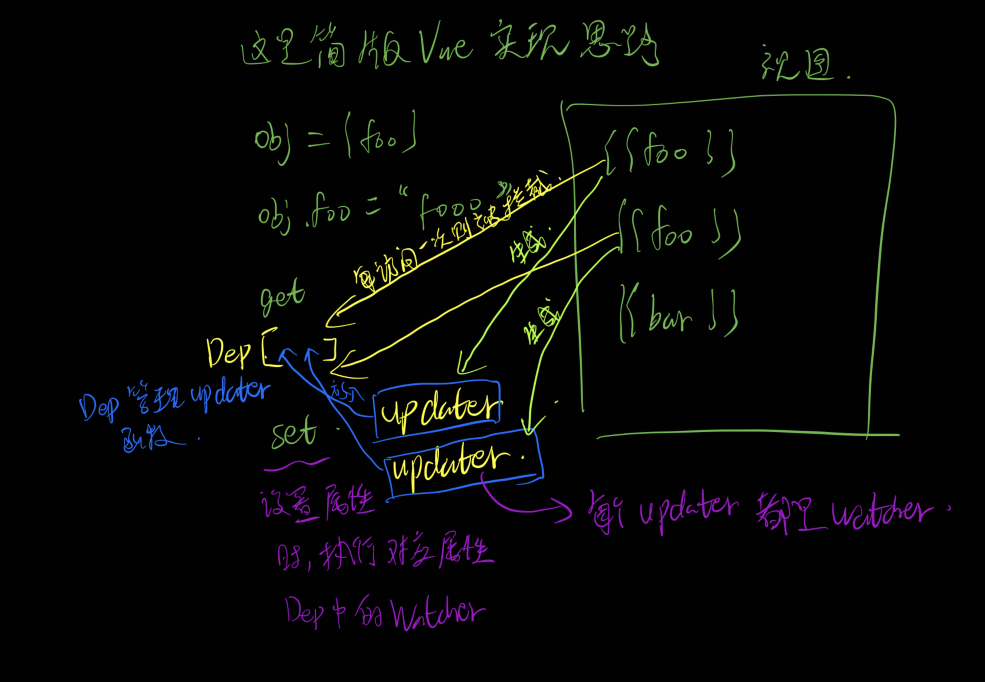 这里简版Vue实现思路
视图.
obj = {foo}
{{foo}}
obj.foo = "fooo"
每访问一次则被拦截.
生成.
{{foo}}
get
生成
{{bar}}
Dep [ ]
Dep管理updater
函数.
放入
updater
set.
updater.
设置属性
时,执行对应属性
Dep中的Watcher
每个updater都是watcher.